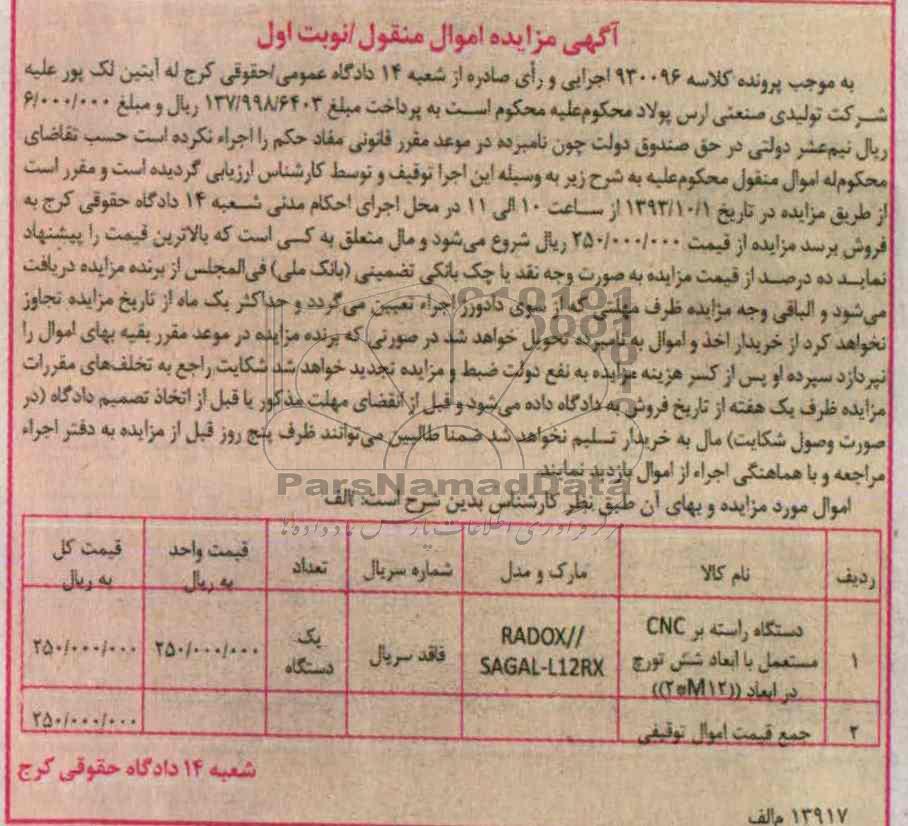 آگهی مزایده اموال منقول/نوبت اول
به موجب پرونده کلاسه ۹۳۰۰۹۶ اجرایی و رأی صادره از شعبه ۱۴ دادگاه عمومی/حقوقی کرج له آبتین لک پور علیه
شرکت تولیدی صنعتی ارس پولاد محکوم‌علیه محکوم است به پرداخت مبلغ ۱۳۷/۹۹۸/۶۴۰۳ ریال و مبلغ ۶/۰۰۰/۰۰۰
ریال نیم‌عشر دولتی در حق صندوق دولت چون نامبرده در موعد مقرر قانونی مفاد حکم را اجراء نکرده است حسب تقاضای
محکوم‌له اموال منقول محکوم‌علیه به شرح زیر به وسیله این اجرا توقیف و توسط کارشناس ارزیابی گردیده است و مقرر است
از طریق مزایده در تاریخ ۱۳۹۳/۱۰/۱ از ساعت ۱۰ الی ۱۱ در محل اجرای احکام مدنی شعبه ۱۴ دادگاه حقوقی کرج به
فروش برسد مزایده از قیمت ۲۵۰/۰۰۰/۰۰۰ ریال شروع می‌شود و مال متعلق به کسی است که بالاترین قیمت را پیشنهاد
نماید ده درصد از قیمت مزایده به صورت وجه نقد یا چک بانکی تضمینی (بانک ملی) فی‌المجلس از برنده مزایده دریافت
می‌شود و الباقی وجه مزایده ظرف مهلتی که از سوی دادورز اجراء تعیین می‌گردد و حداکثر یک ماه از تاریخ مزایده تجاوز
نخواهد کرد از خریدار اخذ و اموال به نامبرده تحویل خواهد شد در صورتی که برنده مزایده در موعد مقرر بقیه بهای اموال را
نپردازد سپرده او پس از کسر هزینه مزایده به نفع دولت ضبط و مزایده تجدید خواهد شد شکایت راجع به تخلف‌های مقررات
مزایده ظرف یک هفته از تاریخ فروش به دادگاه داده می‌شود و قبل از انقضای مهلت مذکور یا قبل از اتخاذ تصمیم دادگاه (در
صورت وصول شکایت) مال به خریدار تسلیم نخواهد شد ضمنا طالبین می‌توانند ظرف پنج روز قبل از مزایده به دفتر اجراء
مراجعه و با هماهنگی اجراء از اموال بازدید نمایند.
ParsNamadData
اموال مورد مزایده و بهای آن طبق نظر کارشناس بدین شرح است: الف
ردیف نام کالا مارک و مدل شماره سریال تعداد قیمت واحد به ریال قیمت کل به ریال
۱ دستگاه راسته بر CNC مستعمل با ابعاد شش تورچ در ابعاد ((۲*M۱۲)) RADOX// SAGAL-L12RX فاقد سریال یک دستگاه ۲۵۰/۰۰۰/۰۰۰ ۲۵۰/۰۰۰/۰۰۰
۲ جمع قیمت اموال توقیفی ۲۵۰/۰۰۰/۰۰۰
شعبه ۱۴ دادگاه حقوقی کرج
۱۳۹۱۷ م/الف